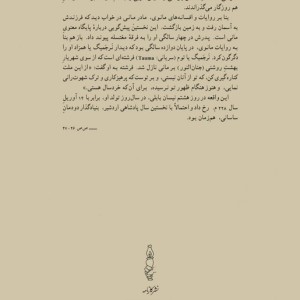 هم روزگار می‌گذراندند.
بنا بر روایات و افسانه‌های مانوی، مادر مانی در خواب دید که فرزندش
به آسمان رفت و به زمین بازگشت. این نخستین پیش‌گویی دربارهٔ پایگاه معنوی
مانی است. پدرش در چهار سالگی او را به فرقهٔ مغتسله پیوند داد. باز هم بنا
به روایات مانوی، در پایان دوازده سالگی بود که دیدار نرجمیگ یا همزاد او را
دگرگون کرد. نرجمیگ یا توم (سریانی: Tauma) فرشته‌ای است که از سوی شهریار
بهشت روشنی (جنان‌النور) بر مانی نازل شد. فرشته به او گفت: «از این ملت
کناره‌گیری کن، که تو از آنان نیستی، و بر توست که پرهیزکاری و ترک شهوت‌رانی
نمایی، و هنوز هنگام ظهور تو نرسیده، برای آن‌که خردسال هستی.»
این واقعه در روز هشتم نیسان بابلی، در سال‌روز تولد او، برابر با ۱۲ آوریل
سال ۲۲۸ م. رخ داد و احتمالاً با نخستین سال پادشاهی اردشیر، بنیادگذار دودمان
ساسانی، هم‌زمان بود.
ص‌ص ۲۶ - ۲۷
نشر کارنامه